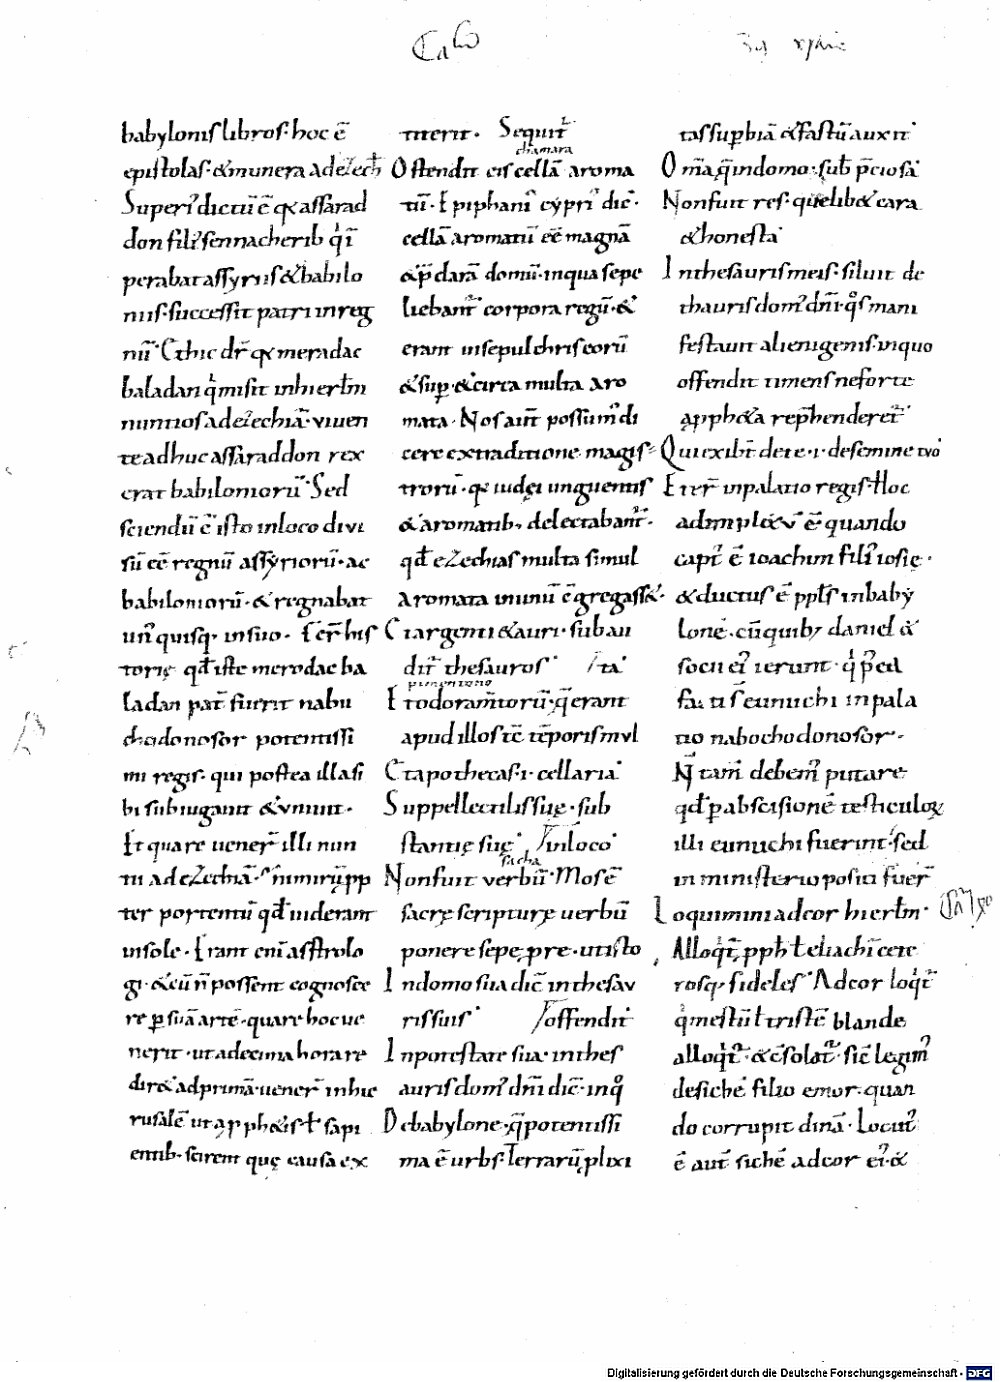 babylonıs libros· hoc ē
epistolas· & munera ad ezech
Superi᾽ dictū ē qa assarad
don fili᾽ sennacherib qi ī
perabat assyriis & babilo
niis· successit patri in reg
nū· Et hic dr̄ qa meradac
baladan q misit in hierłm
nuntios ad ezechiā· viuen
te adhuc assaraddon rex
erat babiloniorū· Sed
sciendū ē isto in loco divi
sū eē regnū assyriorū· ac
babiloniorū· & regnabat
un᾽ quisq· in suo· Fer̄ his
torię qđ iste merodac ba
ladan pat̄ fuerit nabu
chodonosor potentissi
mi regis· qui postea illa si
bi subiugauit & vniuit·
Et quare uener̄ illi nun
tii ad ezechiā· s nimirū pp
ter portentū qđ uiderant
in sole· Erant eni astrolo
gi· & cū n̄ possent cognosce
re p suā artē· quare hoc ue
nerit· ut a decima hora re
dir& ad primā· uener̄ in hie
rusalē ut a pph&is ł sapi
entib· scirent quę causa ex
titerit· Sequit̄
chamara
Ostendit eis cellā aroma
tū· Epiphani᾽ cypri᾽ dic̄·
cellā aromatū eē magnā
& p̄ clarā domū· in qua sepe
liebant̄ corpora regū· &
erant in sepulchris eorū
& sup· & circa multa aro
mata· Nos aut̄ possum᾽ di
cere ex traditione magis=
trorū· qa iudęi unguentis
& aromatib; delectabant̄·
qđ ezechias multa simul
aromata in unū cgregass&·
Et argenti & auri· sub au
dit̄ thesauros· /ta·
pimentorio
Et odoram̄torū· q̄ erant
apud illos tē tēporis mul
Et apothecas· i· cellaria·
Suppellectilis suę· sub
stantię suę· / in loco·
sacha
Non fuit verbū· Mos ē
sacrę scripturę uerbū
ponere sepe p re· ut isto
In domo sua dic̄ in thesau
ris suis· / offendit·
In potestate sua· in thes
auris dom᾽ dn̄i dic̄· in q᾽
De babylone· q̄ potentissi
ma ē urbs· Terrarū plixi
tas supbiā & fastū auxit·
Om̄a q̄ in domo· sub p̄ciosa
Non fuit res· quelib& cara
& honesta·
In thesauris meis· siluit de
thauris dom᾽ dn̄i· qos mani
festauit alienigenis· in quo
offendit timens ne forte
a pph&a rep̄henderet̄·
Qui exibt̄ de te· i· de semine tuo
Et er̄ in palatio regis· Hoc
adimplet̄ ē quando
capt᾽ ē ioachim fili᾽ iosię·
& ductus ē pplṡ in baby
lone· cū quib; daniel &
socii ei᾽ ierunt· qi p̄ ed
facti s̄ eunuchi in pala
tio nabochodonosor·
N̄ tam̄ debem᾽ putare
qđ p abscisionē testiculoꝝ
illi eunuchi fuerint· sed
in ministerio positi fuer̄
Loquimini ad cor hierłm·
Alloqt̄ pph ł eliachī cete
rosq· fideles· Ad cor loqt̄
q mestū ł tristē blande
alloqt̄· & csolat̄· sic̄ legim᾽
de sichē filio emor· quan
do corrupit dinā· Locut᾽
ē aut̄ sichē ad cor ei᾽· &
Digitalisierung gefördert durch die Deutsche Forschungsgemeinschaft - DFG